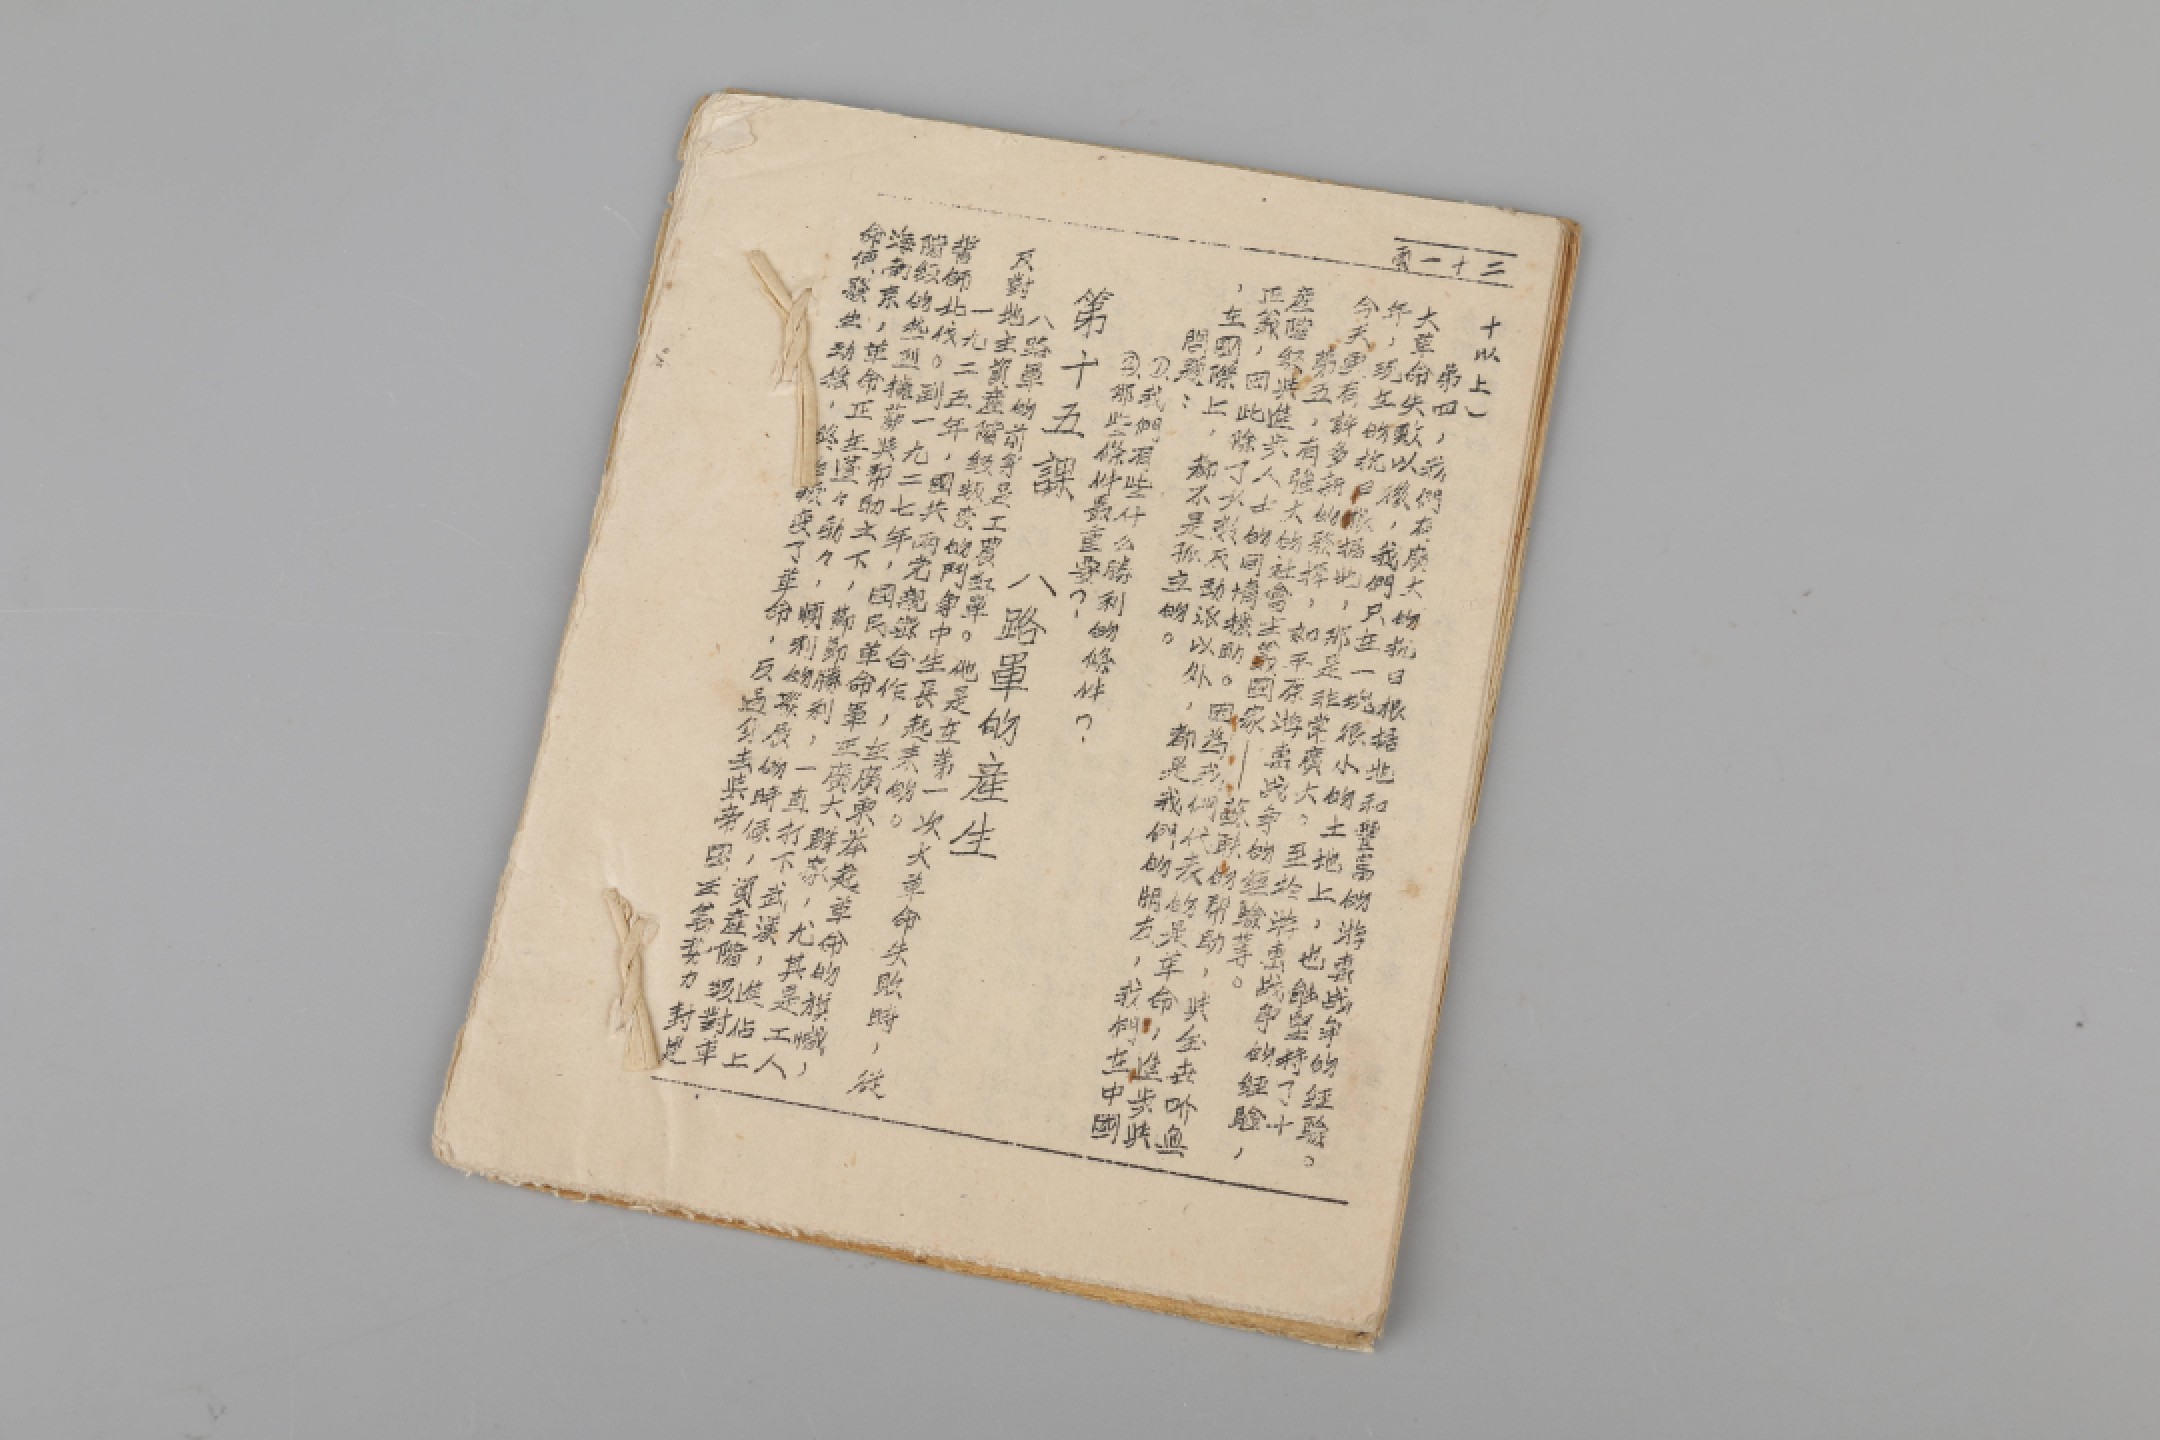 三十一頁
十以上）
第四，我們有廣大的抗日根据地和豐富的游击战争的经驗。
大革命失敗以後，我們只在一塊很小的土地上，也能堅持了十
年，現在的抗日根据地，那是非常廣大。至於游击战争的經驗，
今天更有許多新的發揮，如平原游击战争的經驗等。
第五，有強大的社會主義國家——蘇联的帮助，與全世界無
産階級與進步人士的同情援助。因為我們代表的是革命，進步與
正義，因此除了少數反动派以外，都是我們的朋友，我們在中國
，在國際上，都不是孤立的。
問題：
①我們有些什么勝利的條件？
②那些條件最重要？
第十五課 八路軍的産生
八路軍的前身是工農紅軍。他是在第一次大革命失敗時，從
反對地主資産階級叛变的鬥争中生長起来的。
一九二五年，國共兩党親密合作，在廣東举起革命的旗幟，
誓師北伐。到一九二七年，國民革命軍在廣大群衆，尤其是工人
階級的热烈擁護與帮助之下，節節勝利，一直打下武漢，進佔上
海南京，革命正在蓬々勃々，順利的發展的時候，資産階級對革
命便發生动摇，終至叛变了革命，反過去與帝國主義势力封建